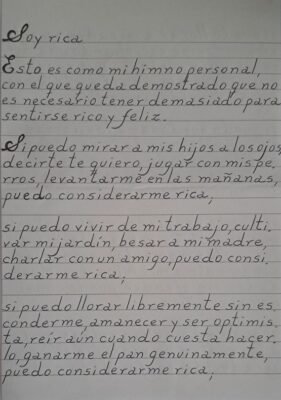 Soy rica
Esto es como mi himno personal,
con el que queda demostrado que no
es necesario tener demasiado para
sentirse rico y feliz.
Si puedo mirar a mis hijos a los ojos,
decirte te quiero, jugar con mis pe
rros, levantarme en las mañanas,
puedo considerarme rica;
si puedo vivir de mi trabajo, culti
var mi jardín, besar a mi madre,
charlar con un amigo, puedo consi
derarme rica;
si puedo llorar libremente sin es
conderme, amanecer y ser optimis
ta, reir aún cuando cuesta hacer
lo, ganarme el pan genuinamente,
puedo considerarme rica;